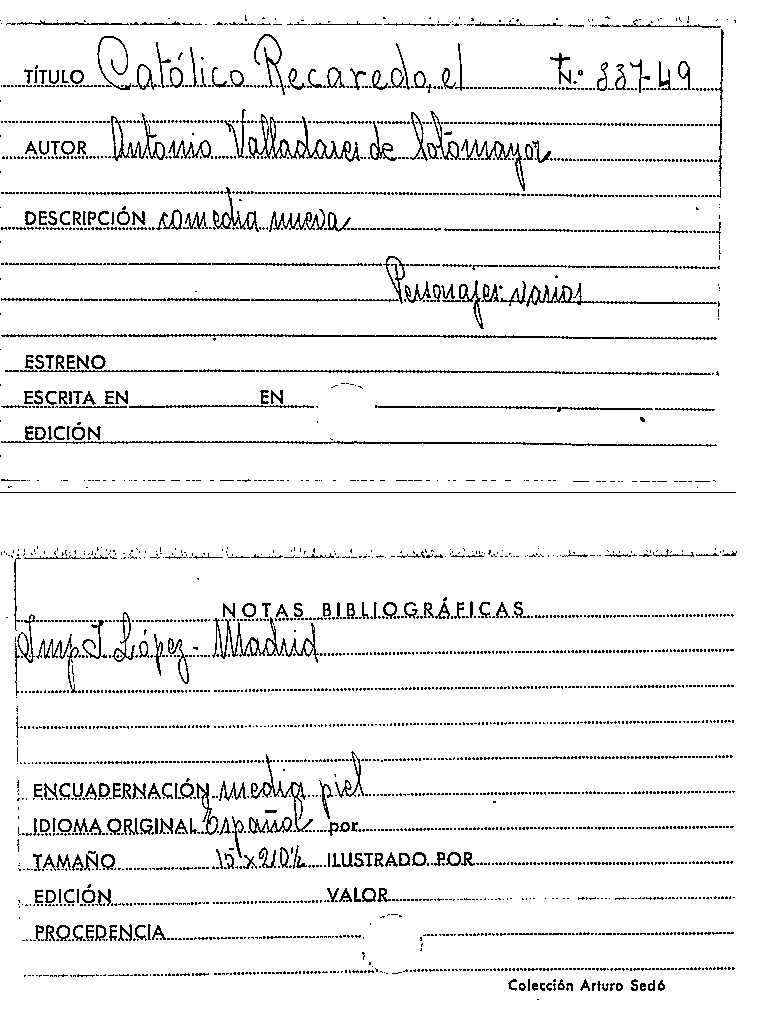 TÍTULO Católico Recaredo, el N.º 337-49
AUTOR Antonio Valladares de Sotomayor
DESCRIPCIÓN comedia nueva
Personajes: varios
ESTRENO
ESCRITA EN EN
EDICIÓN
NOTAS BIBLIOGRÁFICAS
Imp J López - Madrid
ENCUADERNACIÓN media piel
IDIOMA ORIGINAL Español por
TAMAÑO 15 x 210½ ILUSTRADO POR
EDICIÓN VALOR
PROCEDENCIA
Colección Arturo Sedó